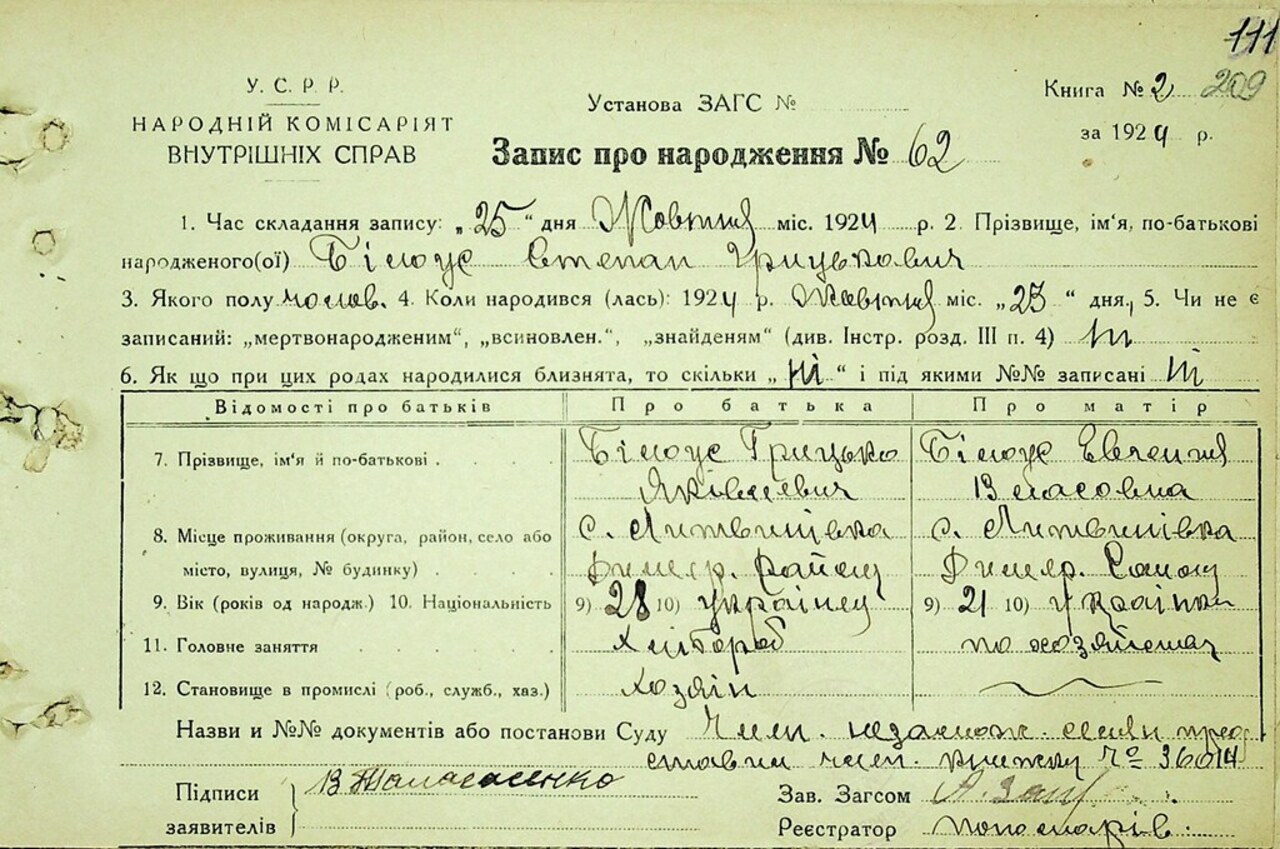 111
У. С. Р. Р.
НАРОДНІЙ КОМІСАРІЯТ
ВНУТРІШНІХ СПРАВ
Установа ЗАГС №
Книга № 2 209
за 1924 р.
Запис про народження № 62
1. Час складання запису: „25“ дня Жовтня міс. 1924 р. 2. Прізвище, ім'я, по-батькові
народженого(ої) Білоус Степан Грицькович
3. Якого полу чолов. 4. Коли народився (лась): 1924 р. Жовтня міс. „23“ дня., 5. Чи не є
записаний: „мертвонародженим“, „всиновлен.“, „знайденям“ (див. Інстр. розд. III п. 4) ні
6. Як що при цих родах народилися близнята, то скільки „ні“ і під якими №№ записані ні
Відомості про батьків Про батька Про матір
7. Прізвище, ім'я й по-батькові Білоус Грицько Білоус Евгения
Яківлевич Власовна
8. Місце проживання (округа, район, село або с. Литвинівка с. Литвинівка
місто, вулиця, № будинку) Димер. району Димер.
9. Вік (років од народж.) 10. Національність 9) 28 10) українец 9) 21 10) українка
11. Головне заняття Хлібороб по хозяйству
12. Становище в промислі (роб., служб., хаз.) Хозяїн
Назви и №№ документів або постанови Суду Член. незамож. селян пред
ставив член. книжку № 36014
Підписи
заявителів
Зав. Загсом
Реєстратор Пономарів